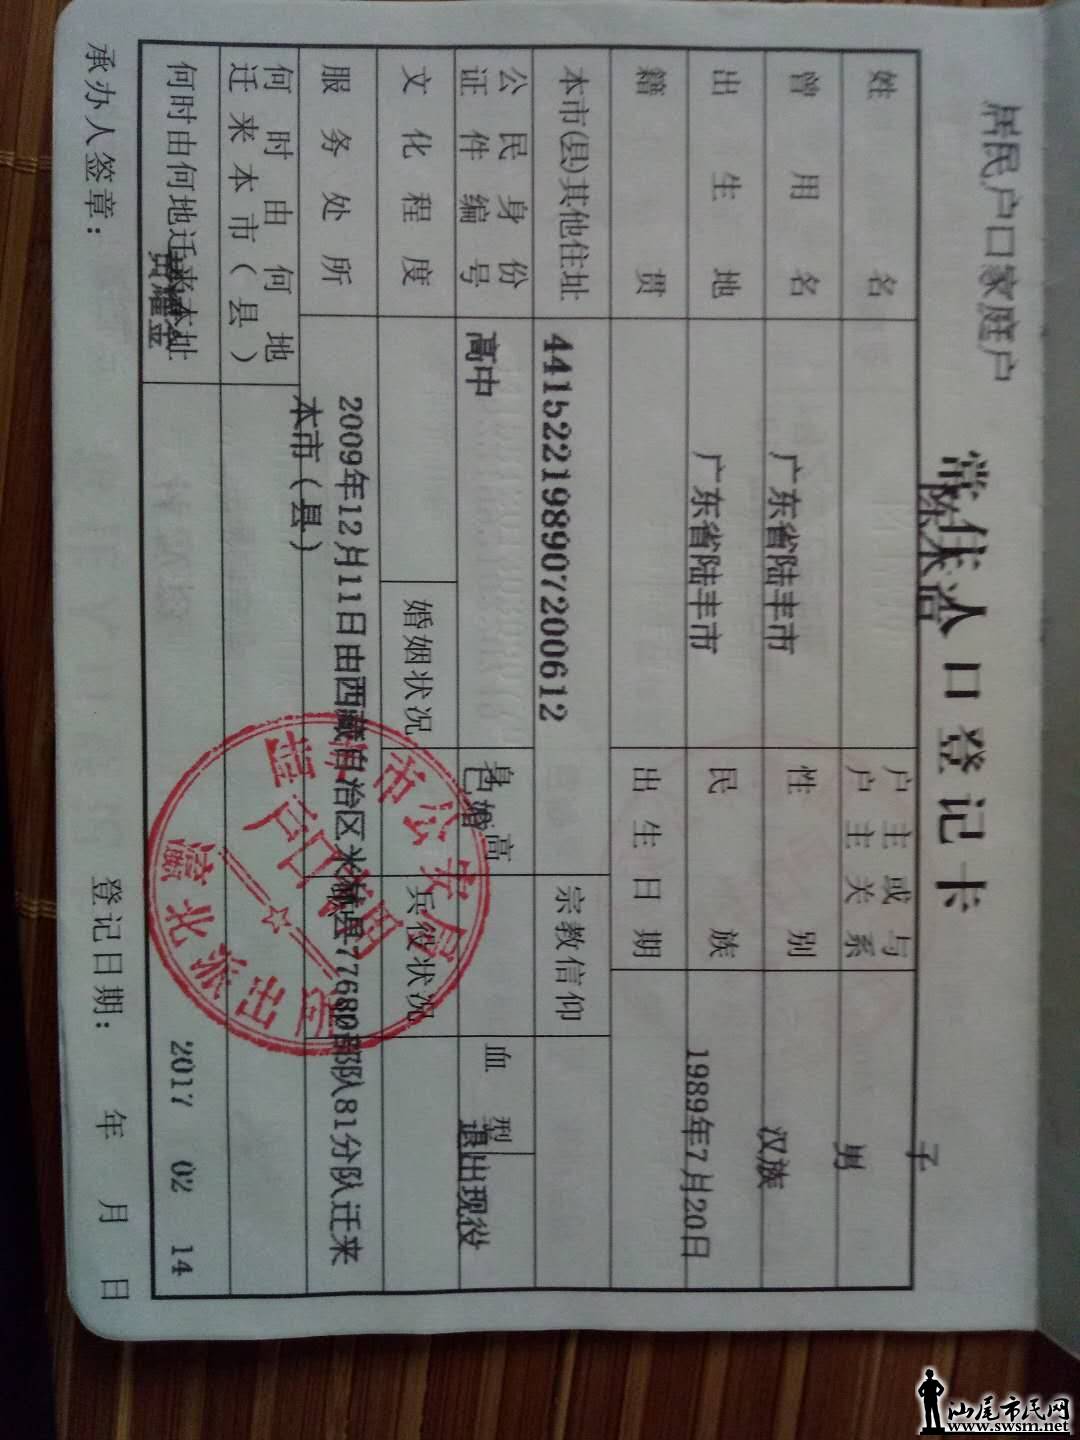 居民户口家庭户
常住人口登记卡
姓名
户主或与户主关系
子
曾用名
性别
男
广东省陆丰市
出生地
民族
汉族
广东省陆丰市
籍贯
出生日期
1989年7月20日
本市(县)其他住址
宗教信仰
441522198907200612
公民身份证件编号
身高
血型
高中
已婚
退出现役
文化程度
婚姻状况
兵役状况
服务处所
2009年12月11日由西藏自治区米林县77680部队81分队迁来
本市(县)
何时由何地迁来本市(县)
何时由何地迁来本址
2017 02 14
承办人签章:
登记日期: 年 月 日
市公安局
户口专用
北派出所
汕尾市民网
www.swsm.net